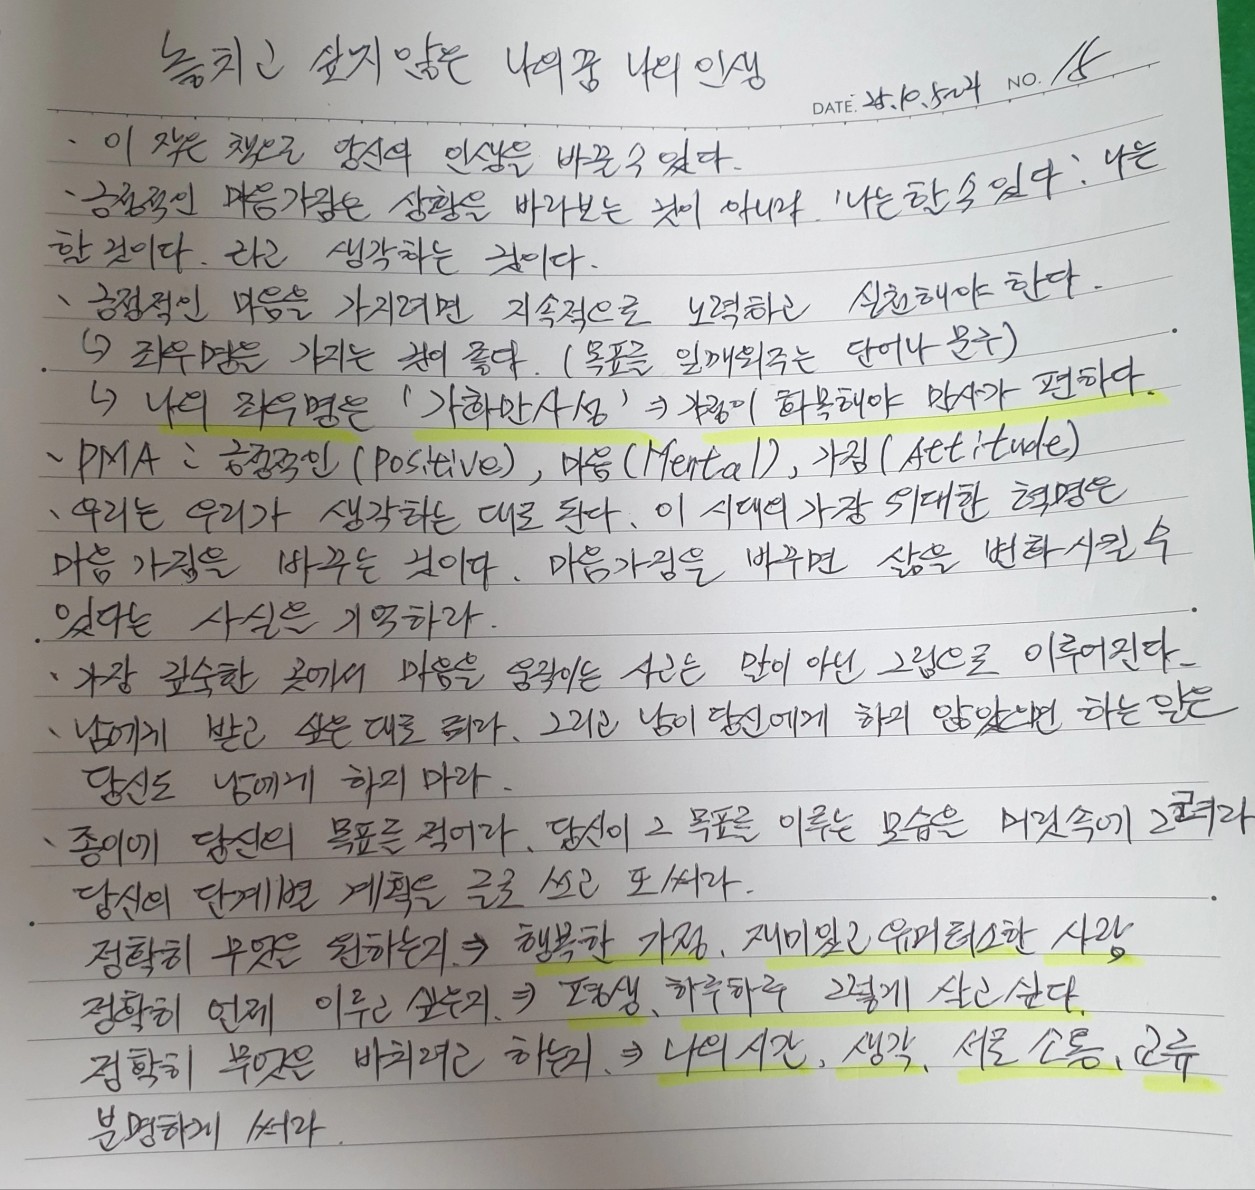 놓치고 싶지 않은 나의 꿈 나의 인생
DATE. 25.10.5~21 NO. 15
· 이 작은 책으로 당신의 인생을 바꿀 수 있다.
· 긍정적인 마음가짐은 상황을 바라보는 것이 아니라 '나는 할 수 있다', 나는
할 것이다. 라고 생각하는 것이다.
· 긍정적인 마음을 가지려면 지속적으로 노력하고 실천해야 한다.
↳ 좌우명을 가지는 것이 좋다. (목표를 일깨워주는 단어나 문구)
↳ 나의 좌우명은 '가화만사성' ⇒ 가정이 화목해야 만사가 편하다.
· PMA : 긍정적인(Positive), 마음(Mental), 가짐(Attitude)
· 우리는 우리가 생각하는 대로 된다. 이 시대의 가장 위대한 혁명은
마음가짐을 바꾸는 것이다. 마음가짐을 바꾸면 삶을 변화시킬 수
있다는 사실을 기억하라.
· 가장 깊숙한 곳에서 마음을 움직이는 사고는 말이 아닌 그림으로 이루어진다.
· 남에게 받고 싶은 대로 줘라. 그리고 남이 당신에게 하지 않았으면 하는 일은
당신도 남에게 하지 마라.
· 종이에 당신의 목표를 적어라. 당신이 그 목표를 이루는 모습을 머릿속에 그려라
당신의 단계별 계획을 글로 쓰고 또 써라.
정확히 무엇을 원하는지. ⇒ 행복한 가정, 재미있고 유머러스한 사람
정확히 언제 이루고 싶은지. ⇒ 평생, 하루하루 그렇게 살고 싶다.
정확히 무엇을 바치려고 하는지. ⇒ 나의 시간, 생각, 서로 소통, 교류
분명하게 써라.